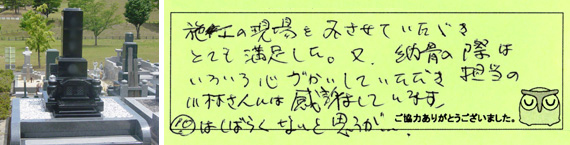 施工の現場をみさせていただき
とても満足した。又、納骨の際は
いろいろ心がかいしていただき担当の
川村さんには感謝しています
⑩はしばらくないと思うが…。
ご協力ありがとうございました。